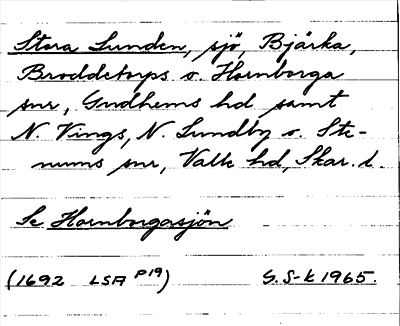 Stora Lunden, sjö, Bjärka,
Broddetorps o. Hornborga
snr, Gudhems hd samt
N. Vings, N. Lundby o. Ste-
nums snr, Valle hd, Skar. l.
Se Hornborgasjön
(1692 LSA P19) G. S-k 1965.